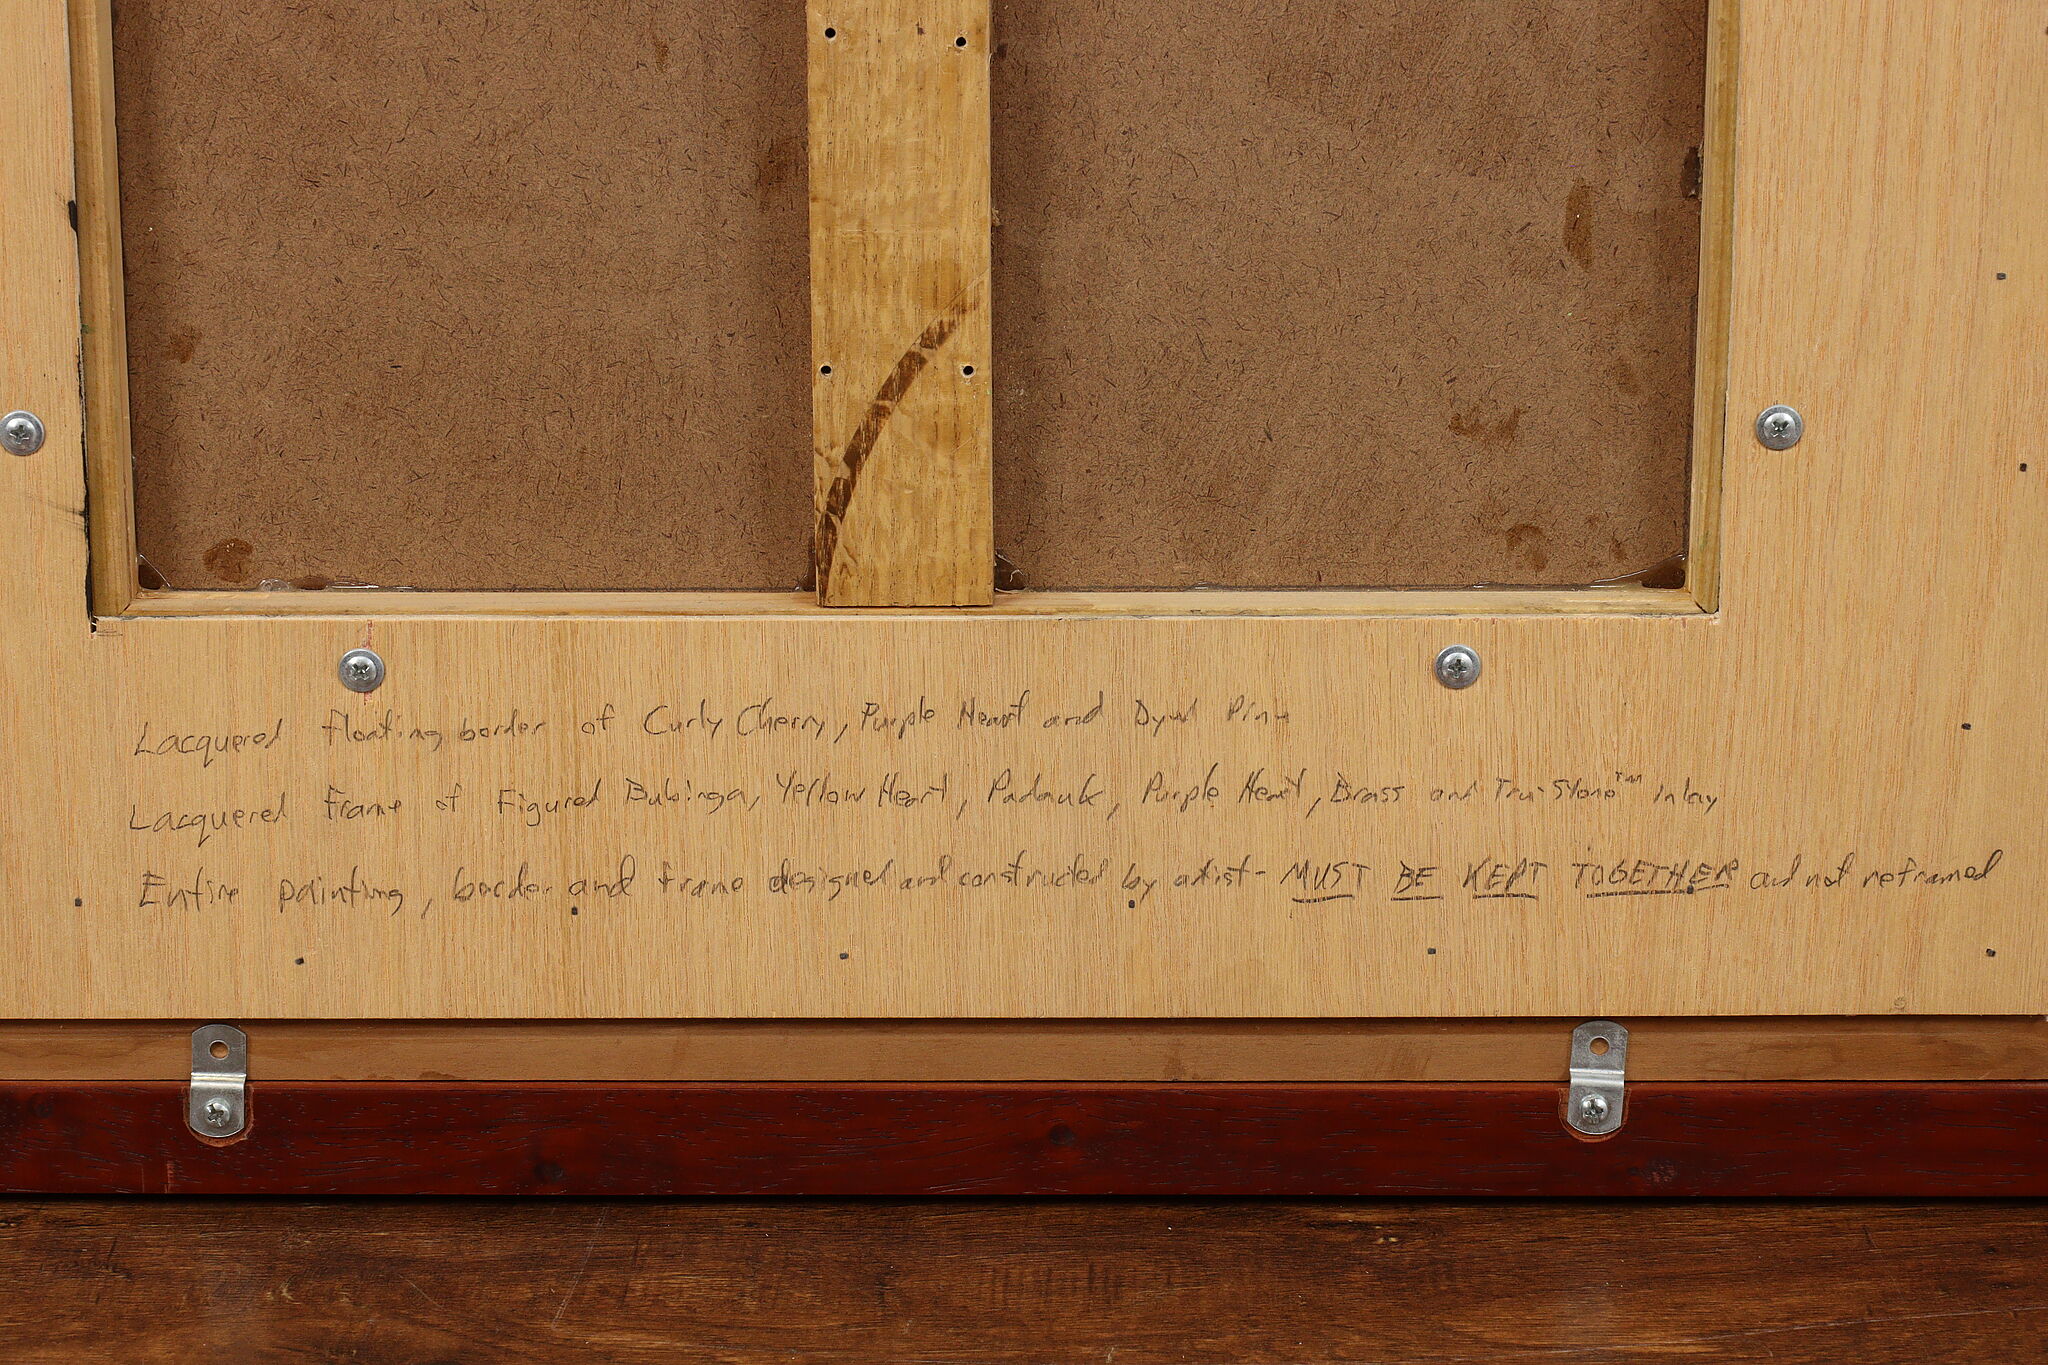 Lacquered floating border of Curly Cherry, Purple Heart and Dyed Pine
Lacquered frame of Figured Bubinga, Yellow Heart, Padauk, Purple Heart, Brass and Tru-Stone™ inlay
Entire painting, border and frame designed and constructed by artist - MUST BE KEPT TOGETHER and not reframed